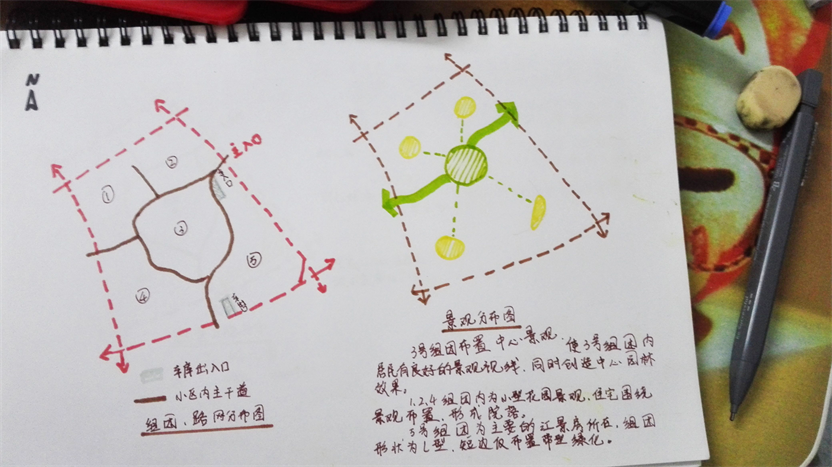 N
主入口
①
②
③
④
⑤
车库出入口
小区内主干道
组团、路网分布图
景观分布图
3号组团布置中心景观.使3号组团内
居民有良好的景观视线,同时创造中心园林
效果。
1,2,4组团内为小型花园景观,住宅围绕
景观布置,形成院落。
5号组团为主要的江景房所在,组团
形状为L型,短边仅布置带型绿化。